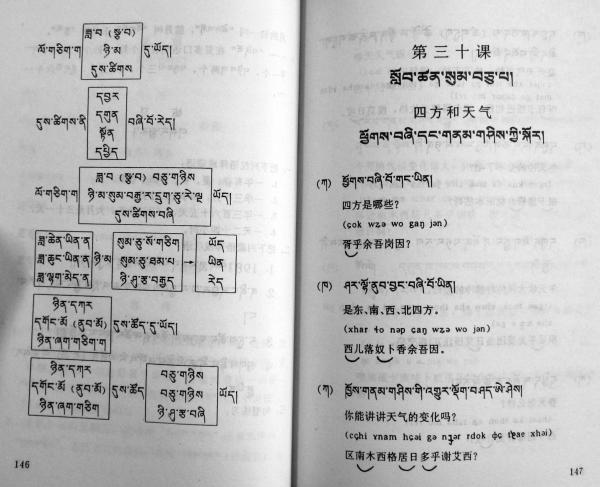 ཟླ་བ (སྟ་བ)
ལོ་གཅིག་ག ཉི་མ དུ་ཡོད།
དུས་ཚིགས་
དབྱར
དགུན
དུས་ཚིགས་ནི བཞི་བོ་རེད།
སྟོན
དཔྱིད
ཟླ་བ (སྟ་བ) བཅུ་གཉིས
ལོ་གཅིག་ག ཉི་མ་སུམ་བརྒྱ་ར་དྲུག་ཅུ་རེ་ལྔ ཡོད།
དུས་ཚིགས་བཞི
ཟླ་ཆེན་ཡིན་ན སུམ་ཅུ་སོ་གཅིག ཡོད
ཟླ་ཆུང་ཡིན་ན ཉི་མ སུམ་ཅུ་ཐམ་པ → ཡིན
ཟླ་ལྷག་མེད་ན ཉི་ཤུ་རྩ་བརྒྱད རེད
ཉིན་དཀར
དགོང་མོ (ནུབ་མོ) དུས་ཚོད་དུ་ཡོད།
ཉིན་ཞག་གཅིག་ག
ཉིན་དཀར བཅུ་གཉིས
དགོང་མོ (ནུབ་མོ) དུས་ཚོད བཅུ་གཉིས ཡོད།
ཉིན་ཞག་གཅིག ཉི་ཤུ་རྩ་བཞི
146
第三十课
སློབ་ཚན་སུམ་བཅུ་པ།
四方和天气
ཕྱོགས་བཞི་དང་གནམ་གཤིས་ཀྱི་སྐོར།
(ཀ) ཕྱོགས་བཞི་བོ་གང་ཡིན།
四方是哪些?
(ɕok wzə wo gaŋ jən)
胥乎余吾岗因?
(ཁ) ཤར་ལྷོ་ནུབ་བྱང་བཞི་བོ་ཡིན།
是东、南、西、北四方。
(xhar ɬo nəp ɕaŋ wzə wo jən)
西儿落奴卜香余吾因。
(ཀ) ཁྱོས་གནམ་གཤིས་གི་འགྱུར་ལྡོག་བཤད་ཨེ་ཤེས།
你能讲讲天气的变化吗?
区南木西格居日多乎谢艾西?
147